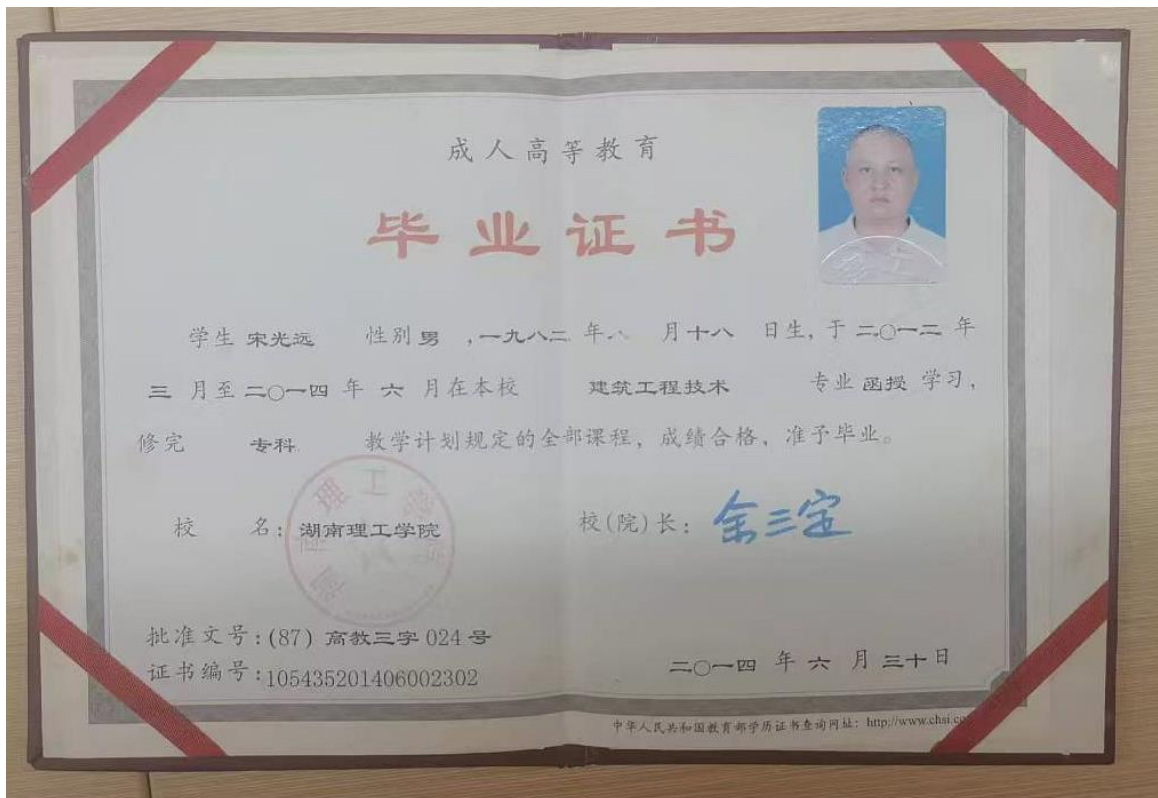 成人高等教育
毕业证书
学生 宋光远 性别 男 ,一九八二 年 八 月 十八 日生, 于 二〇一二 年
三 月至 二〇一四 年 六 月在本校 建筑工程技术 专业 函授 学习,
修完 专科 教学计划规定的全部课程, 成绩合格, 准予毕业。
校 名: 湖南理工学院 校(院)长: 余三定
批准文号:(87) 高教三字 024 号
证书编号:105435201406002302
二〇一四 年 六 月 三十 日
中华人民共和国教育部学历证书查询网址: http://www.chsi.co